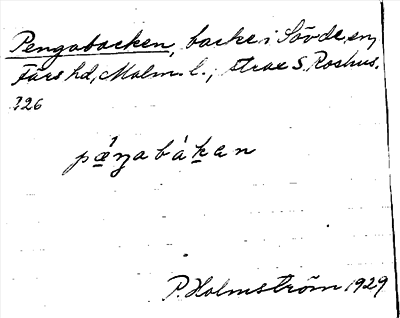 Pengabacken, backe i Sövde sn,
Färs hd, Malm. l.; strax S. Roshus.
326
pǽŋabákan
P. Holmström 1929